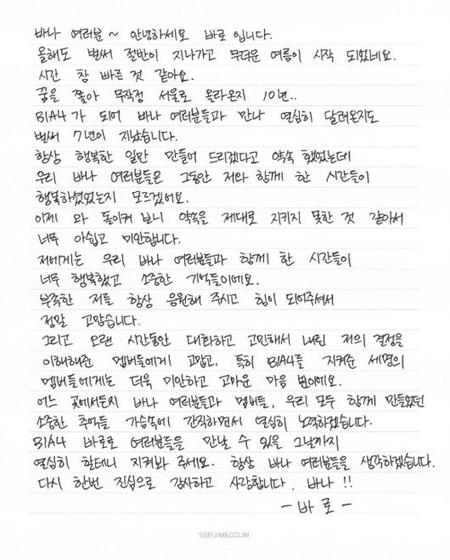 바나 여러분~ 안녕하세요 바로 입니다.
올해도 벌써 절반이 지나가고 무더운 여름이 시작 되었네요.
시간 참 빠른 것 같아요.
꿈을 쫓아 무작정 서울로 올라온지 10년..
B1A4가 되어 바나 여러분들과 만나 열심히 달려온지도
벌써 7년이 지났습니다.
항상 행복한 일만 만들어 드리겠다고 약속 했었는데
우리 바나 여러분들은 그동안 저와 함께 한 시간들이
행복하셨었는지 모르겠어요.
이제 와 돌이켜 보니 약속을 제대로 지키지 못한 것 같아서
너무 아쉽고 미안합니다.
저에게는 우리 바나 여러분들과 함께 한 시간들이
너무 행복했고 소중한 기억들이에요.
부족한 저를 항상 응원해 주시고 힘이 되어주셔서
정말 고맙습니다.
그리고 오랜 시간동안 대화하고 고민해서 내린 저의 결정을
이해해준 멤버들에게 고맙고, 특히 B1A4를 지켜준 세명의
멤버들에게는 더욱 미안하고 고마운 마음 뿐이에요.
어느 곳에서든지 바나 여러분들과 멤버들, 우리 모두 함께 만들었던
소중한 추억들 가슴속에 간직하면서 열심히 노력하겠습니다.
B1A4 바로로 여러분들을 만날 수 있을 그날까지
열심히 할테니 지켜봐 주세요. 항상 바나 여러분들을 생각하겠습니다.
다시 한번 진심으로 감사하고 사랑합니다. 바나!!
- 바로 -